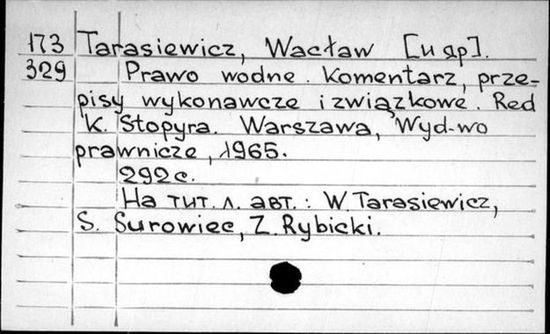 173 Tarasiewicz, Wacław [и др].
329 Prawo wodne. Komentarz, prze-
pisy wykonawcze i związkowe. Red
K. Stopyra. Warszawa, Wyd-wo
prawnicze, 1965.
292 c.
На тит. л. авт.: W. Tarasiewicz,
S. Surowiec, Z. Rybicki.